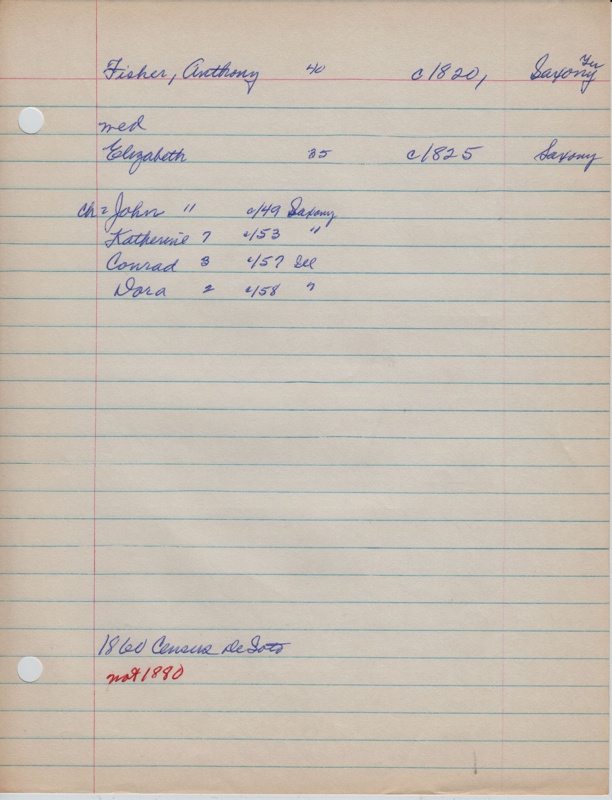 Fisher, Anthony 40 c1820, Saxony
med
Elizabeth 35 c1825 Saxony
ch= John 11 c/49 Saxony
Katherine 7 c/53 "
Conrad 3 c/57 Ill
Dora 2 c/58 "
1860 Census DeSoto
not 1880